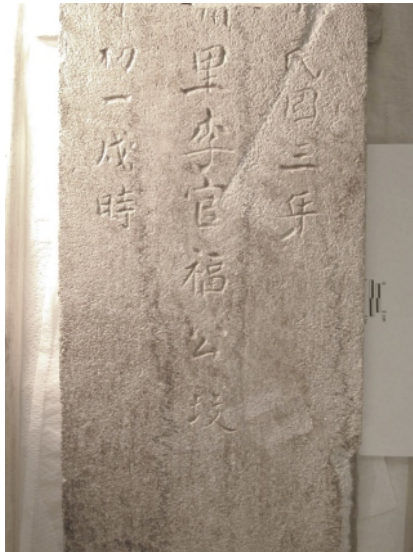 民國三年
里李官福公坟
初一戌時